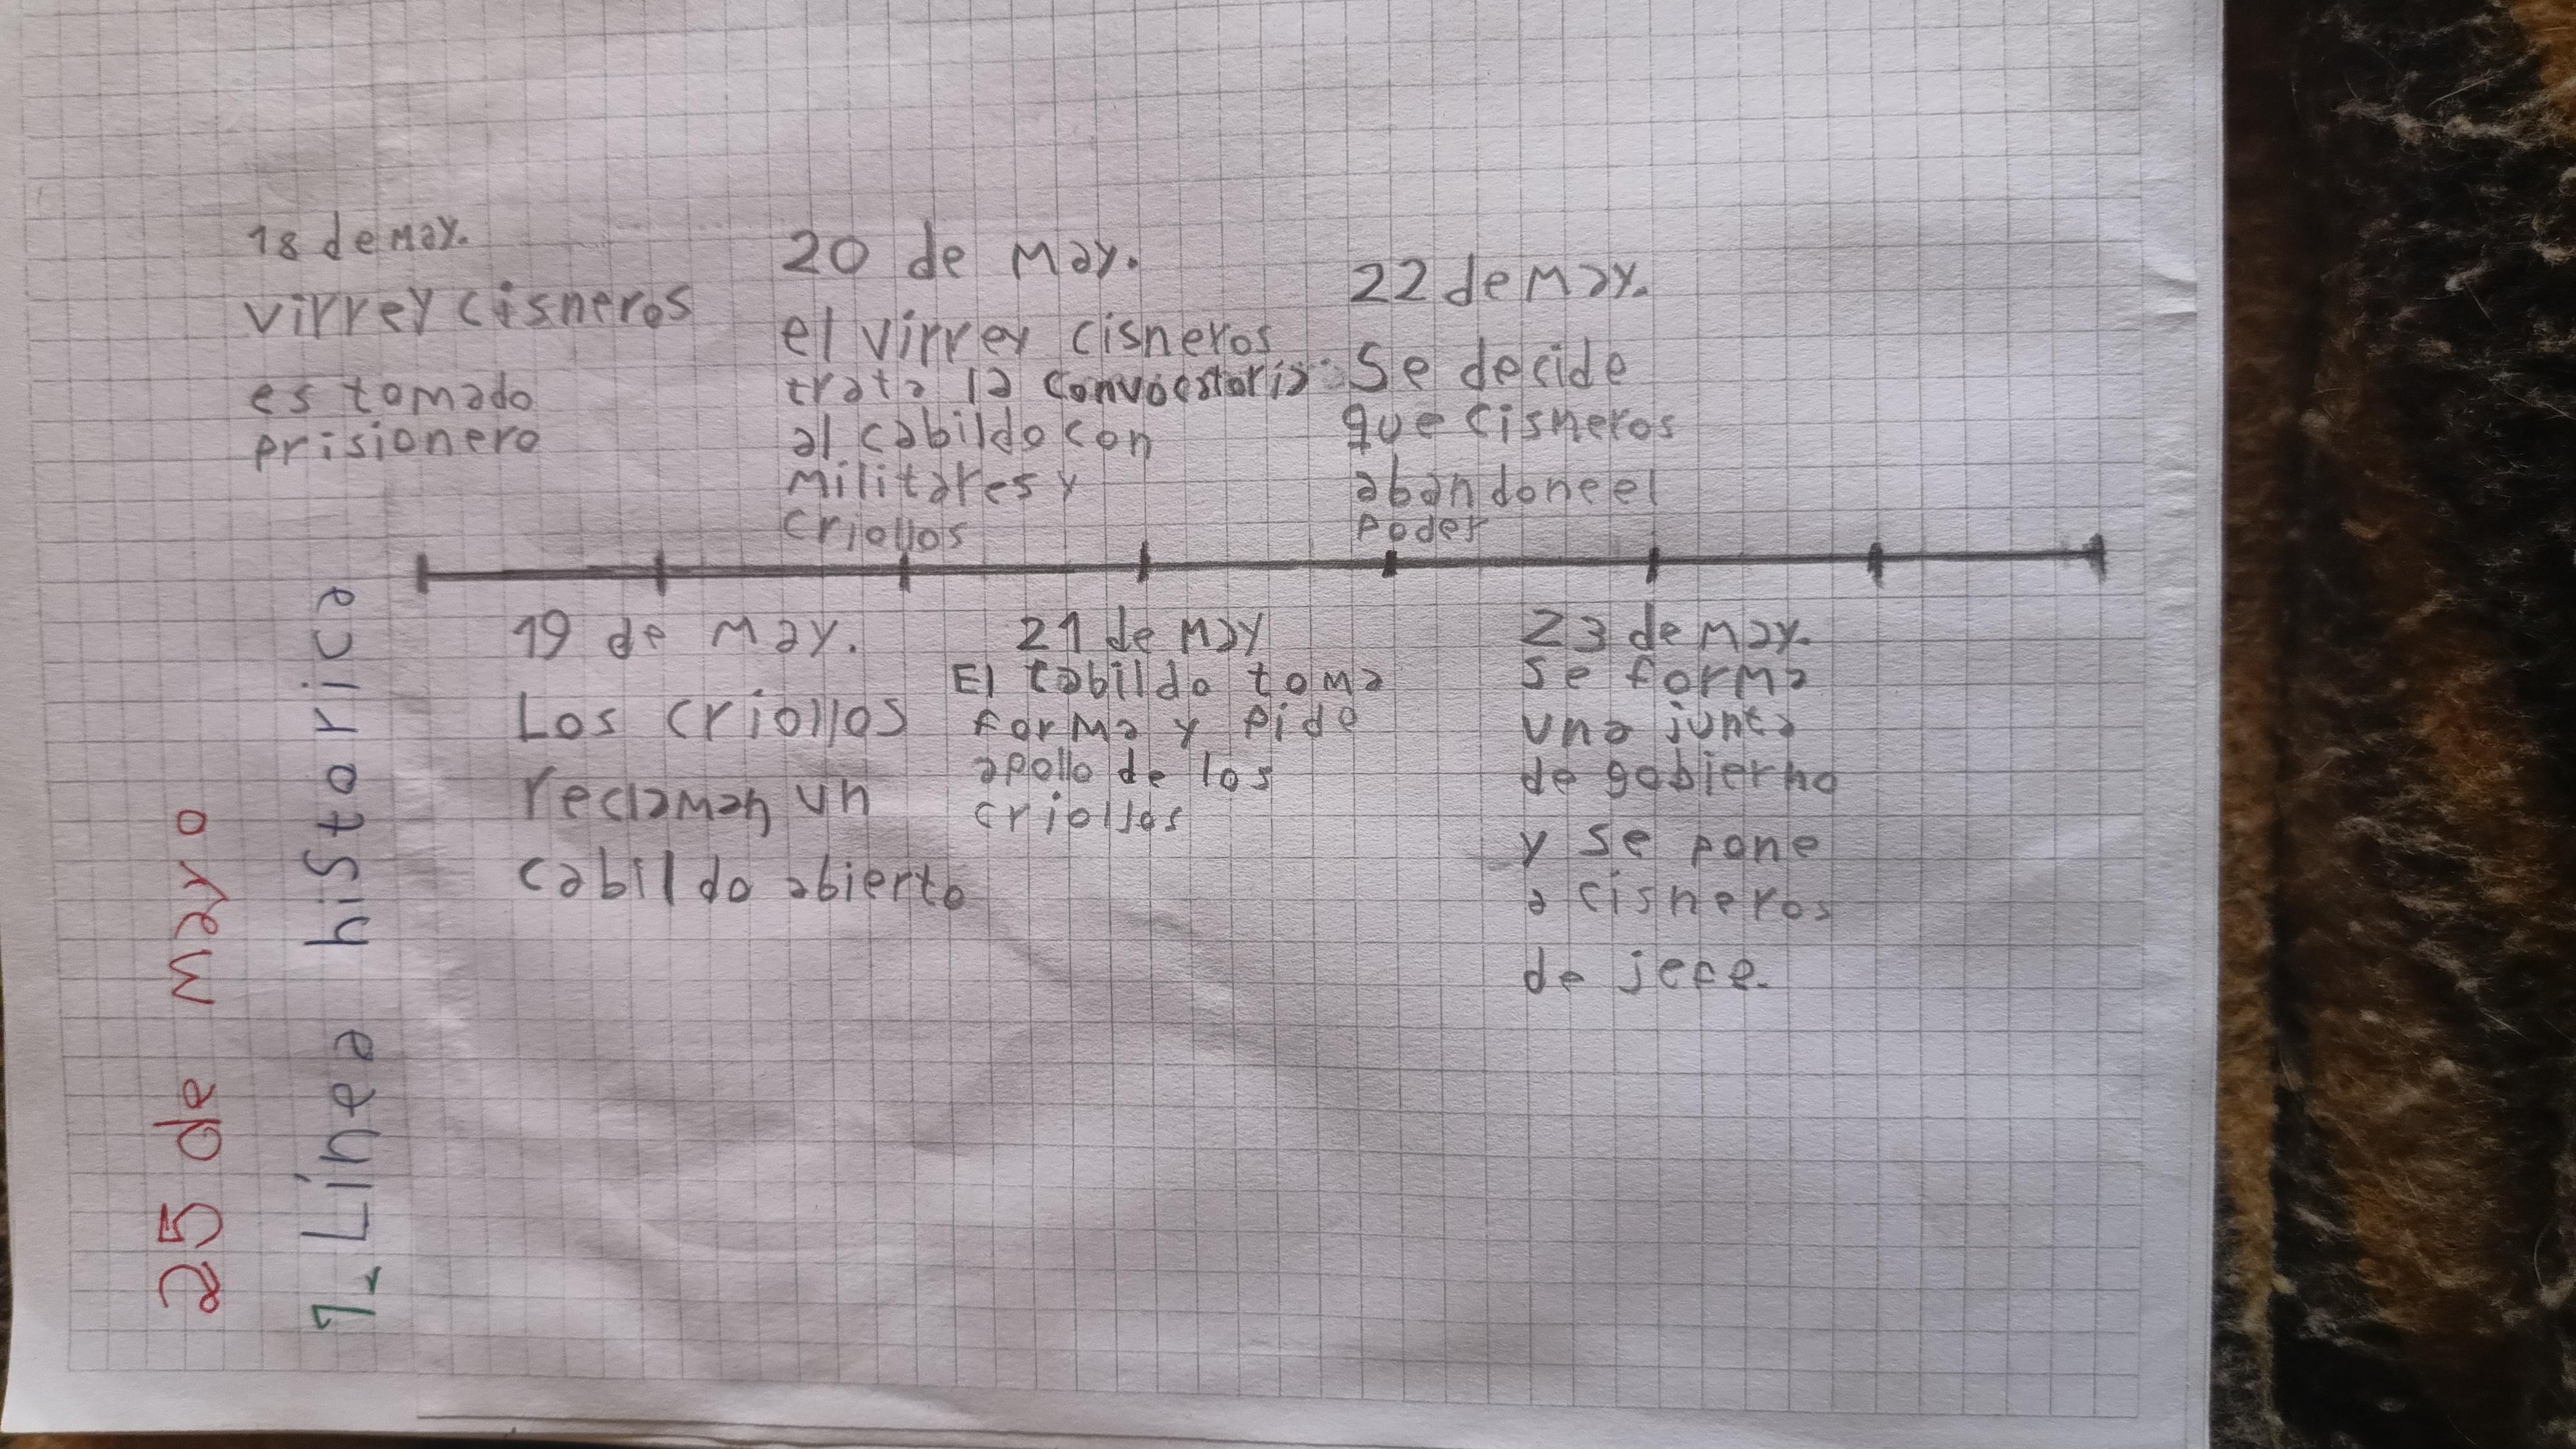 25 de mayo
1. Línea historica
18 de may.
virrey cisneros
es tomado
prisionero
19 de may.
Los criollos
reclaman un
cabildo abierto
20 de may.
el virrey cisneros
trata la convocatoria
al cabildo con
militares y
criollos
21 de may
El cabildo toma
forma y pide
apollo de los
criollos
22 de may.
Se decide
que cisneros
abandone el
poder
23 de may.
se forma
una junta
de gobierno
y se pone
a cisneros
de jefe.